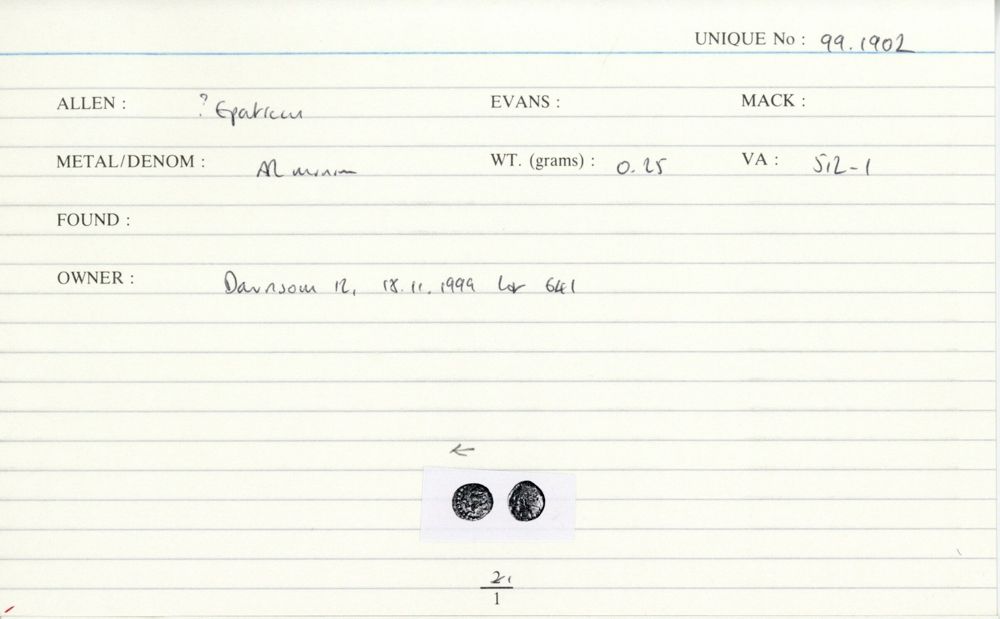 UNIQUE No : 99.1902
ALLEN : ? Epaticcus EVANS : MACK :
METAL/DENOM : AR minim WT. (grams) : 0.25 VA : 512-1
FOUND :
OWNER : Davisson 12, 18.11.1999 lot 641
←
2
1